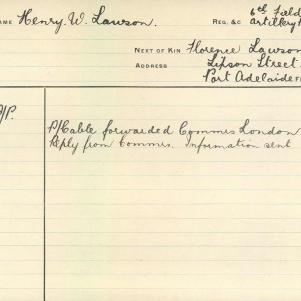 AME Henry. W. Lawson. REG. &C 6th Field
artillery
NEXT OF KIN Florence Lawson
ADDRESS Lipson Street.
Port Adelaide
/P.
P/Cable forwarded Commis London
Reply from Commis. Information sent